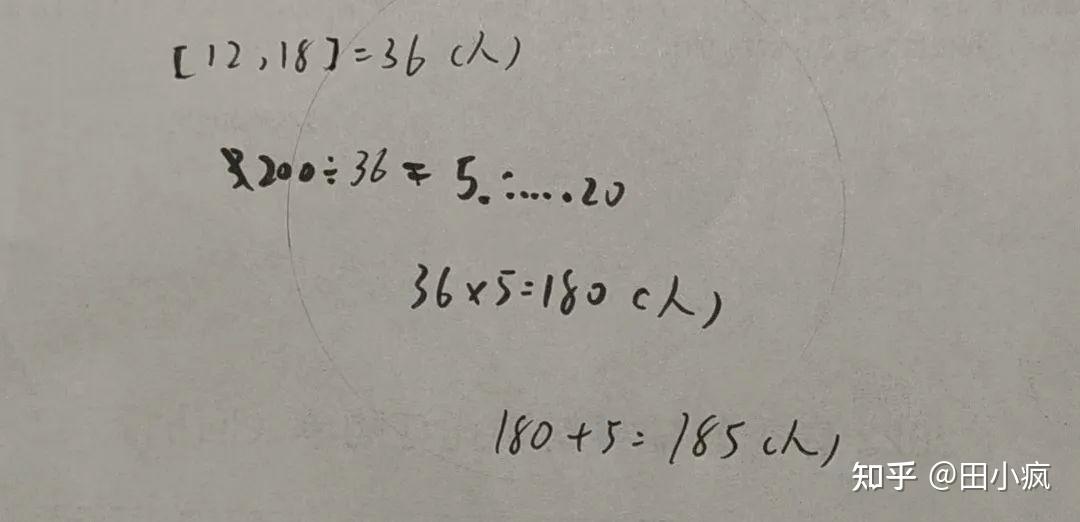 [12,18]=36(人)
200÷36=5......20
36×5=180(人)
180+5=185(人)
知乎 @田小疯